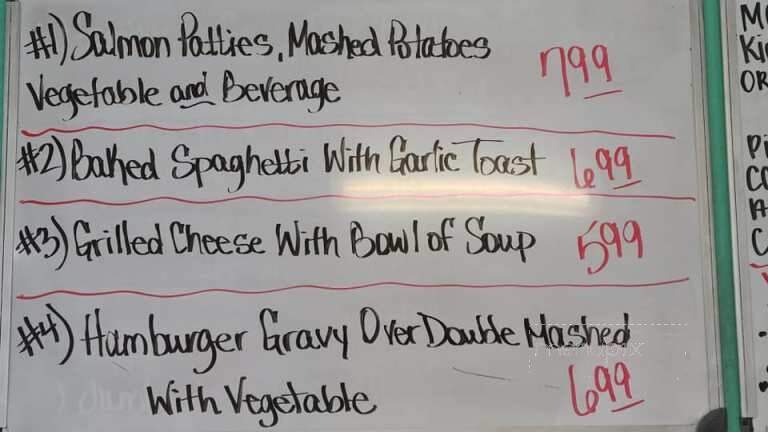 #1) Salmon Patties, Mashed Potatoes
Vegetable and Beverage 799
#2) Baked Spaghetti With Garlic Toast 699
#3) Grilled Cheese With Bowl of Soup 599
#4) Hamburger Gravy Over Double Mashed
With Vegetable 699
menupix
OR